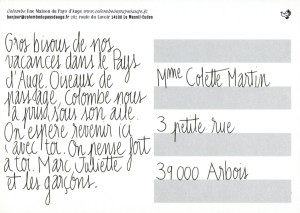 Colombe Une Maison du Pays d'Auge www.colombedupaysdauge.fr
bonjour@colombedupaysdauge.fr 262 route du Lavoir 14130 Le Mesnil-Eudes
Gros bisous de nos
vacances dans le Pays
d'Auge. Oiseaux de
passage, Colombe nous
a pris sous son aile.
On espère revenir ici
avec toi. On pense fort
à toi. Marc, Juliette
et les garçons.
Mme Colette Martin
3 petite rue
39000 Arbois